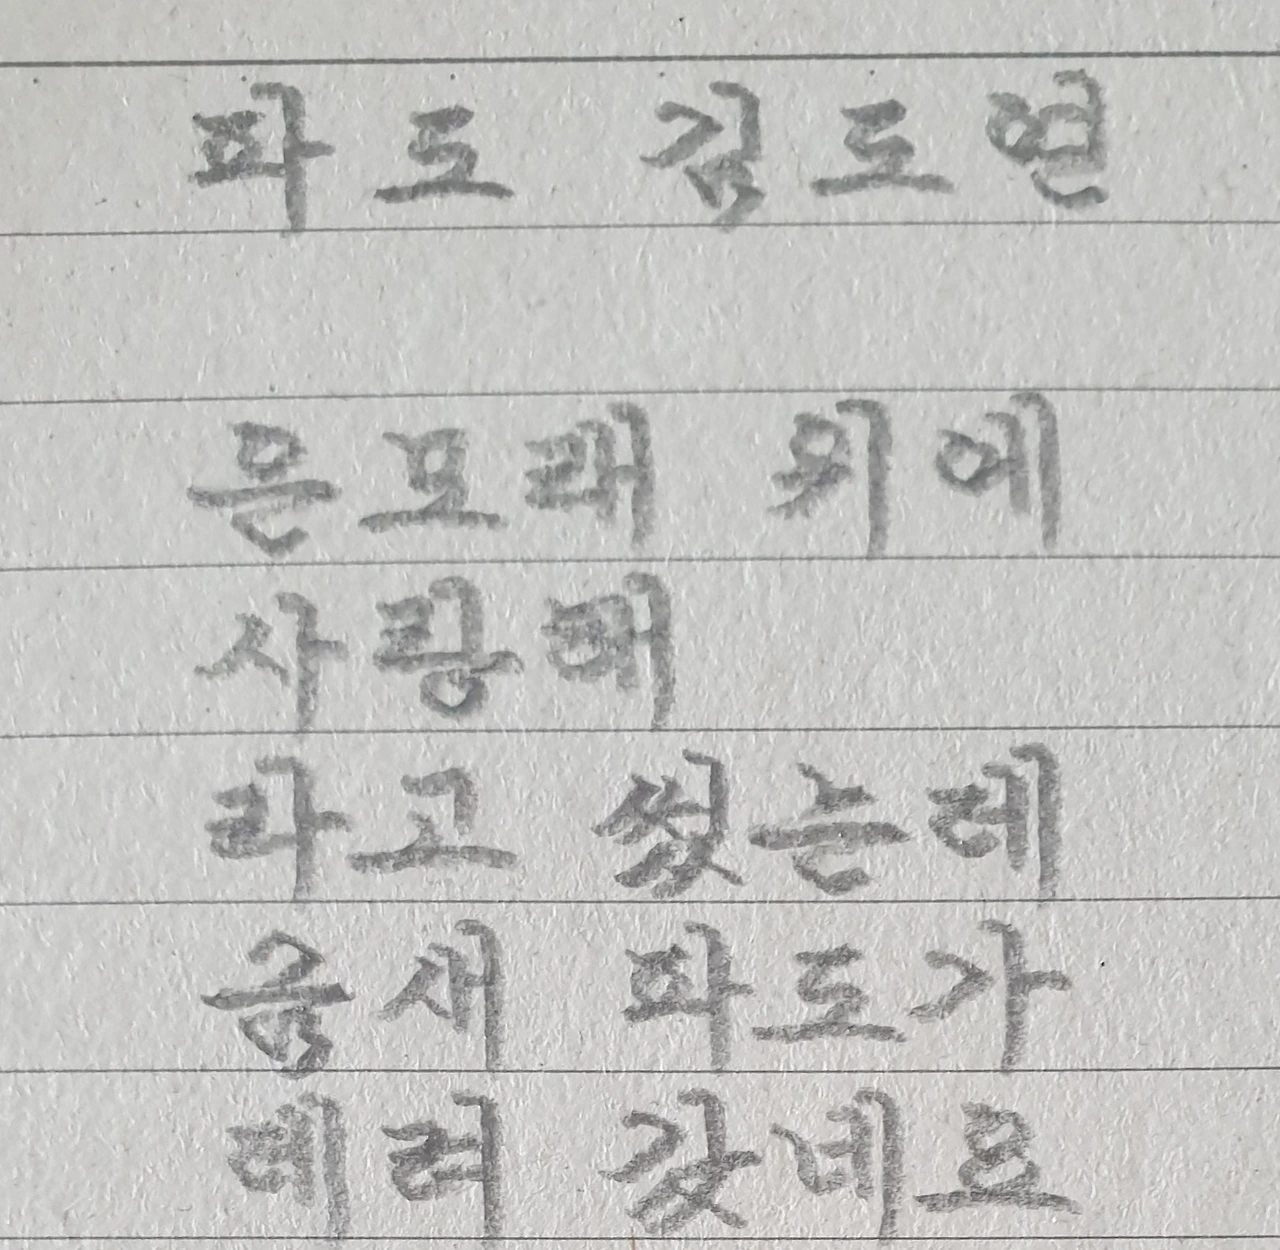 파도 김도연
은모래 위에
사랑해
라고 썼는데
금새 파도가
데려 갔네요